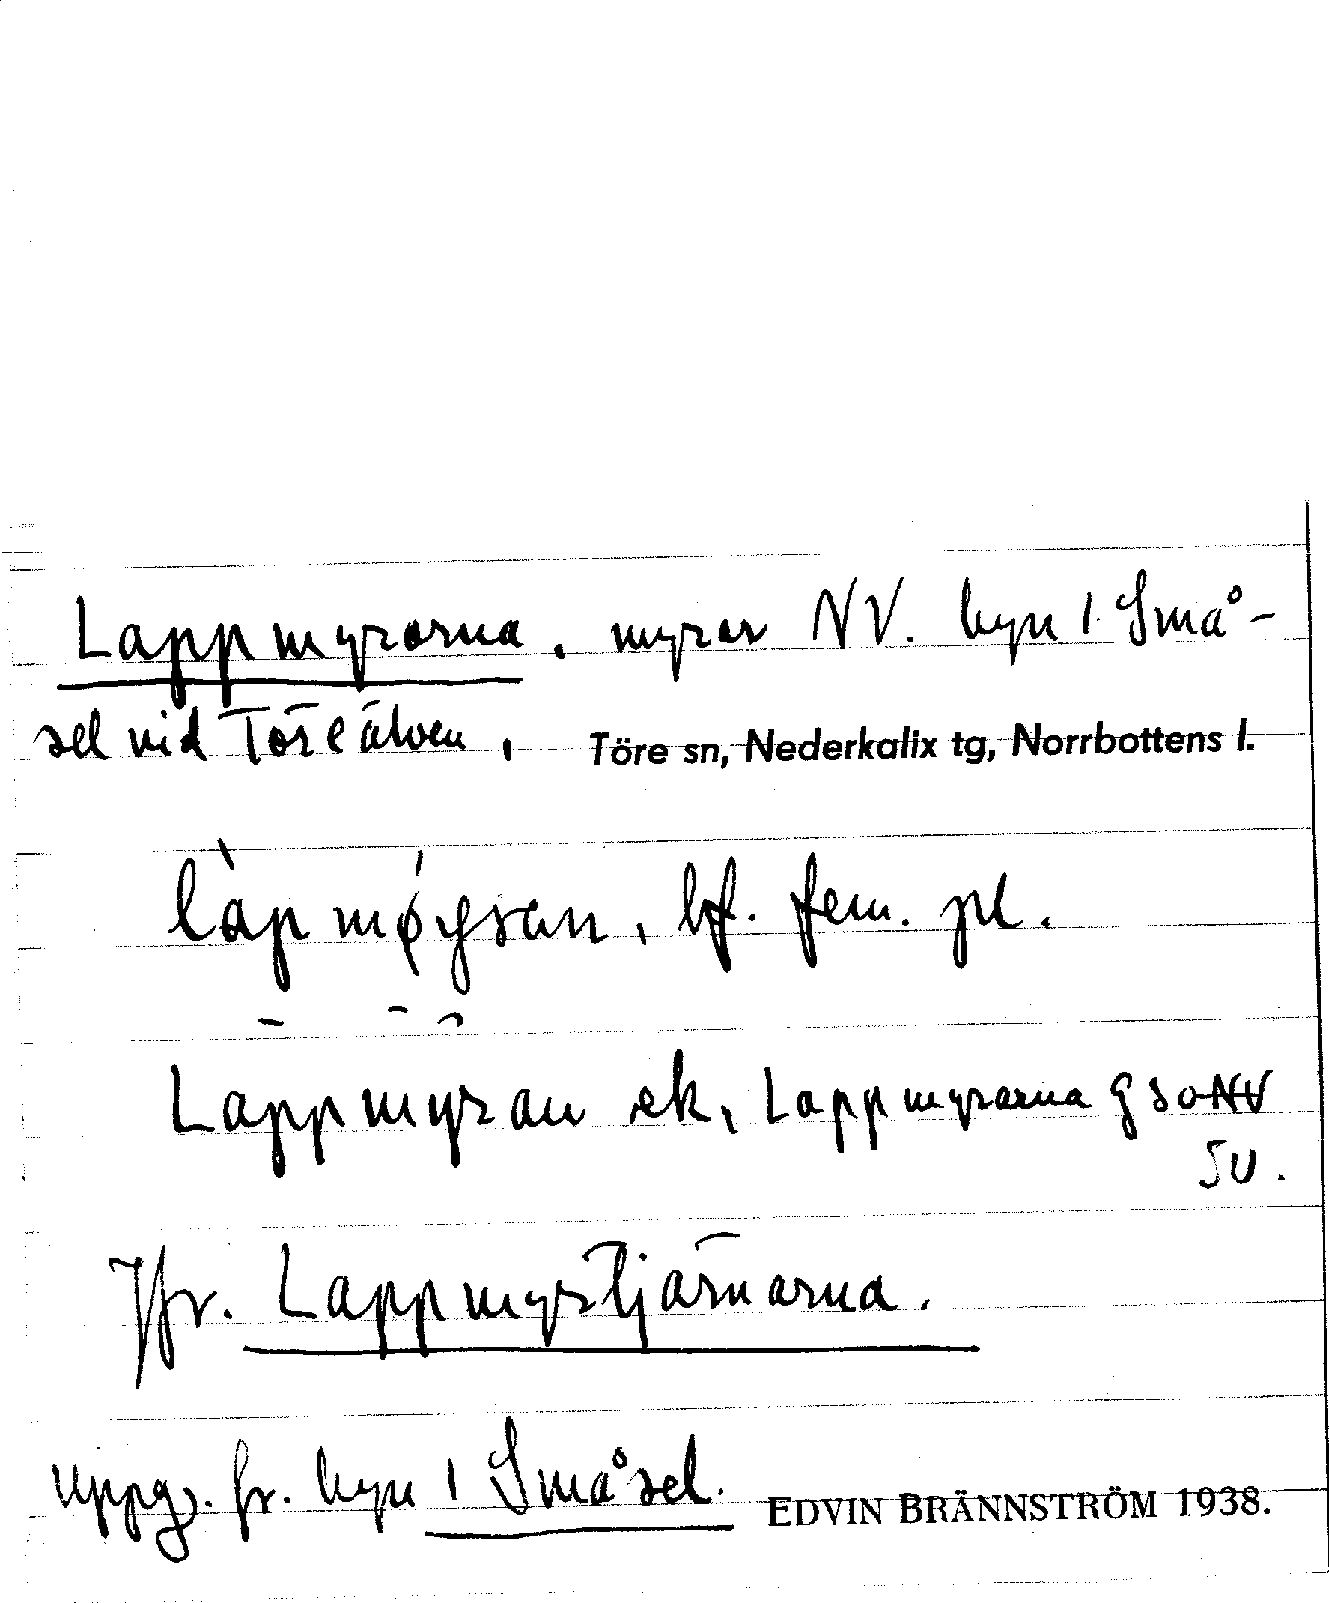 Lappmyrarna, myrar NV. byn 1 Små-
sel vid Töreälven, Töre sn, Nederkalix tg, Norrbottens l.
bf. fem. pl.
Lappmyran ek, Lappmyrarna G SO NV
SV.
Jfr. Lappmyrtjärnarna.
uppg. fr. byn 1 Småsel. EDVIN BRÄNNSTRÖM 1938.